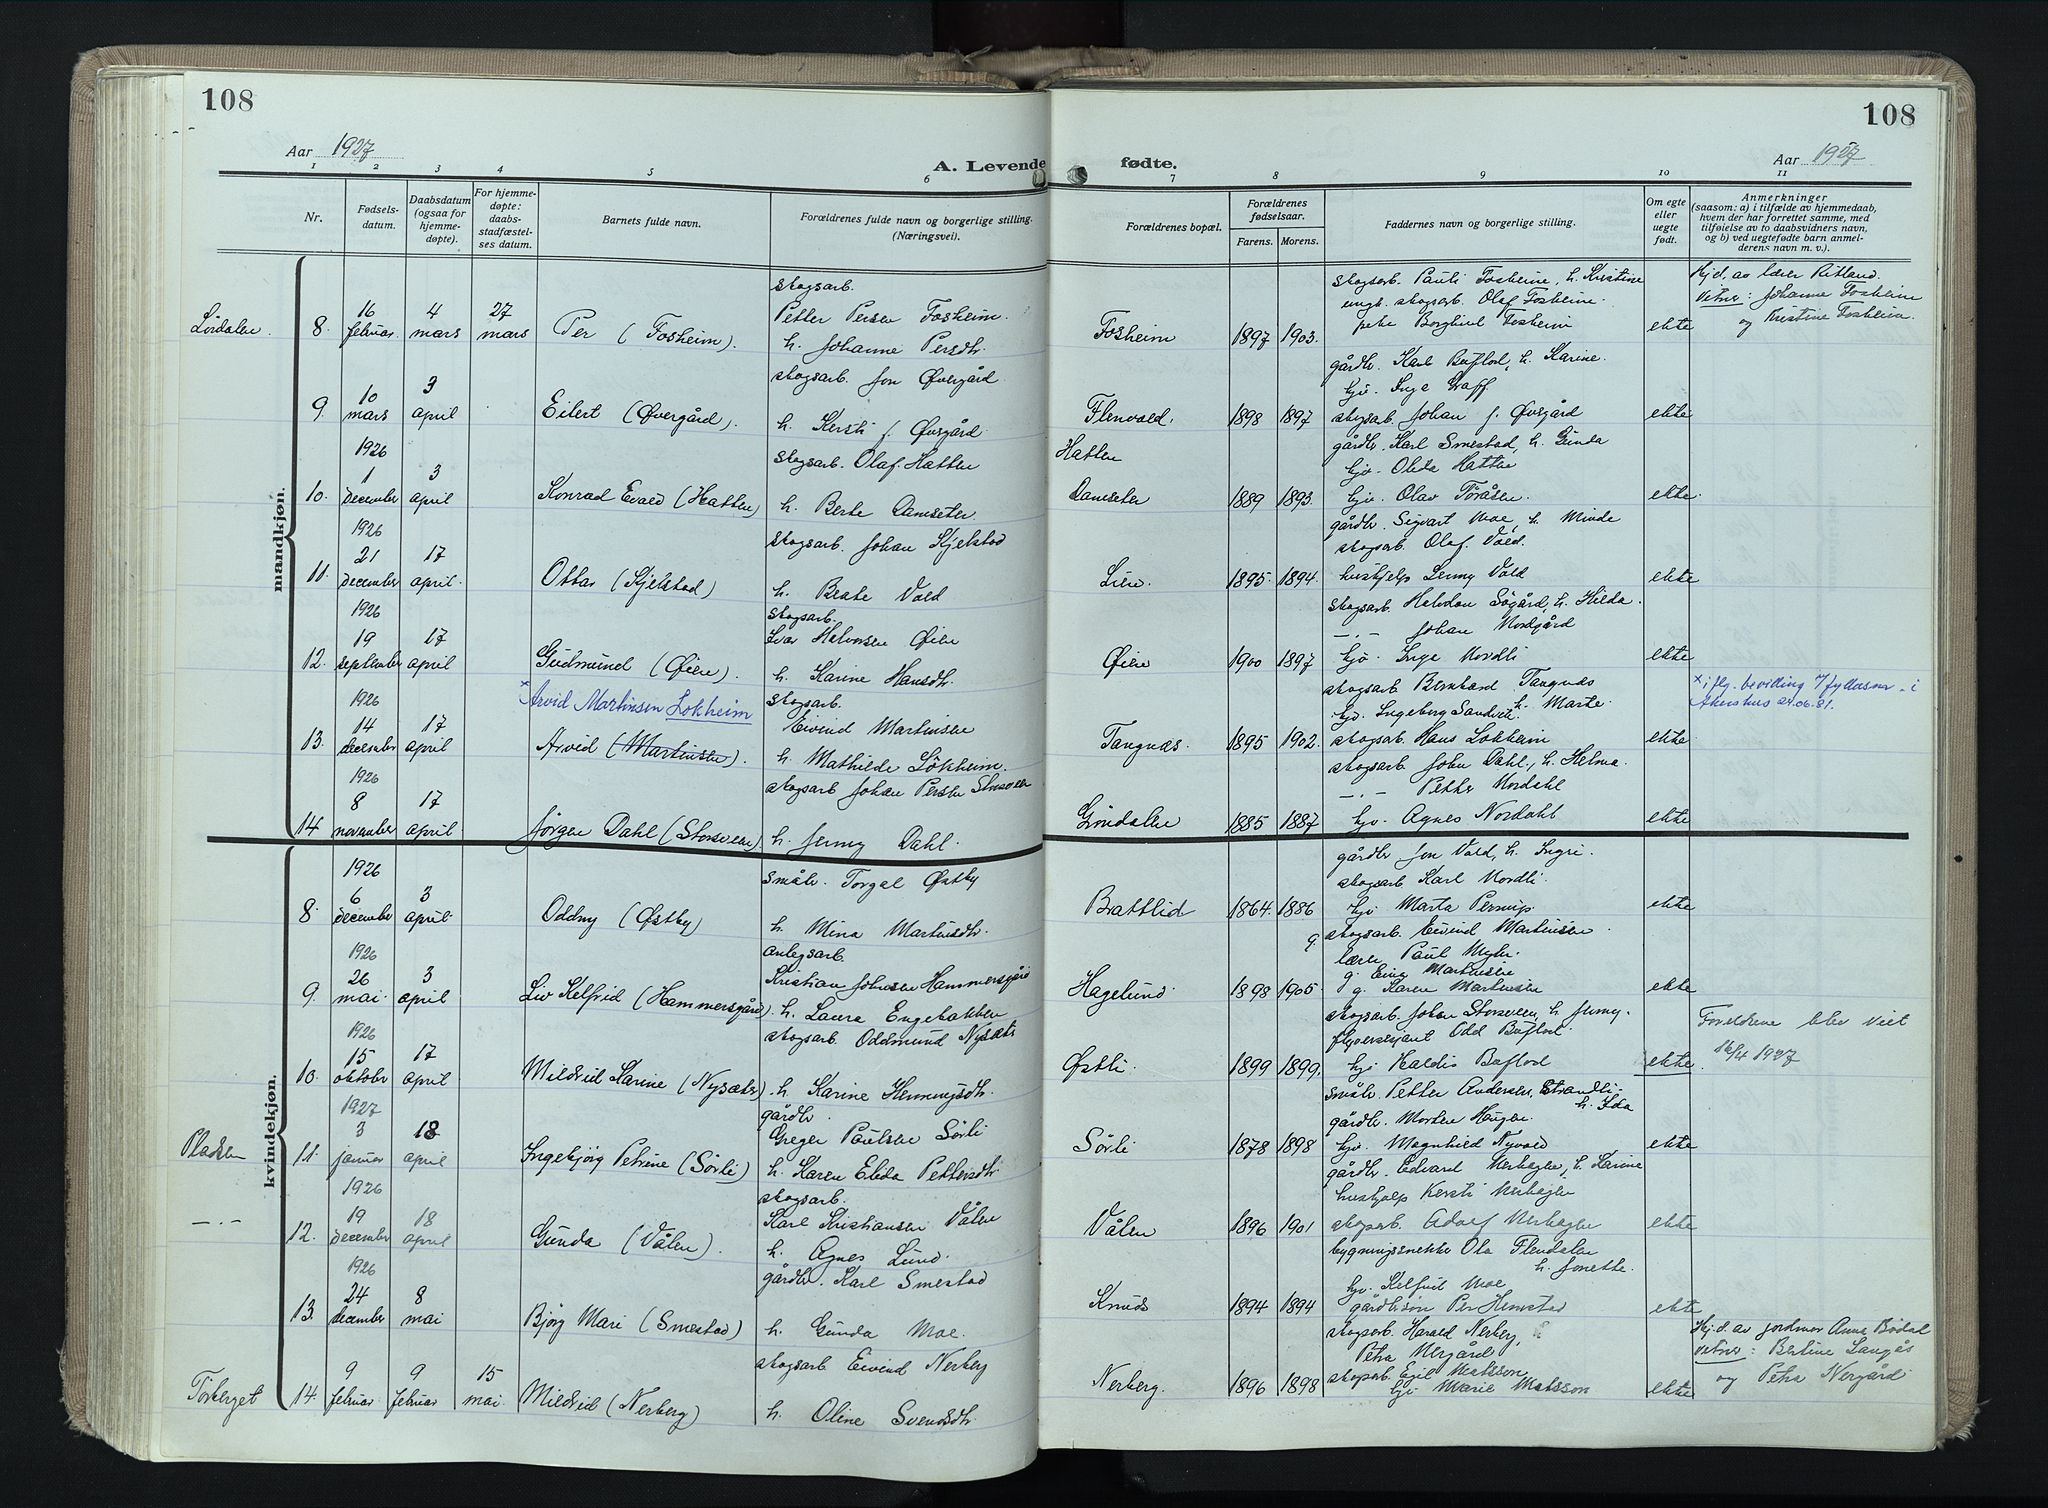 108
108
Aar 1927
A. Levende fødte.
Aar 1927
1 2 3 4 5 6 7 8 9 10 11
Nr.
Fødsels-
datum.
Daabsdatum
(ogsaa for
hjemme-
døpte).
For hjemme-
døpte:
daabs-
stadfæstel-
ses datum.
Barnets fulde navn.
Forældrenes fulde navn og borgerlige stilling.
(Næringsvei).
Forældrenes bopæl.
Forældrenes
fødselsaar.
Farens. Morens.
Faddernes navn og borgerlige stilling.
Om egte
eller
uegte
født.
Anmerkninger
(saasom: a) i tilfælde av hjemmedaab,
hvem der har forrettet samme, med
tilføielse av to daabsvidners navn,
og b) ved uegtefødte barn anmel-
derens navn m. v.).
mandkjøn.
Lørdalen.
8. 16 februar 4 mars 27 mars
Per (Fosheim).
skogsarb.
Petter Persen Fosheim.
h. Johanne Persdtr.
Fosheim 1897 1903.
skogsarb. Pauli Fosheim, h. Kristine
ungk. skogsarb. Olaf Fosheim.
pike Borghild Fosheim
ekte
Hjd. av lærer Ritland.
Vitner: Johanne Fosheim
og Kristine Fosheim.
9. 10 mars 3 april
Eilert (Øvergård).
skogsarb. Jon Øvergård
h. Kersti J. Øvergård
Flenvold. 1898 1897
gårdbr. Karl Buflod, h. Karine.
hjv. Inga Graff.
skogsarb. Johan J. Øvergård
ekte
10. 1926 1 december 3 april
Konrad Evald (Hatten)
skogsarb. Olaf Hatten
h. Berte Damseter
Hatten
Damseter 1889 1893.
gårdbr. Karl Smestad, h. Gunda
hjv. Oleda Hatten
hjv. Olav Toråsen.
ekte.
11. 1926 21 december 17 april.
Ottar (Kjelstad)
skogsarb. Johan Kjelstad
h. Beate Vold
Lien. 1895. 1894.
gårdbr. Sigvart Moe, h. Minda
skogsarb. Olaf Vold.
hushjelp Jenny Vold
ekte
12. 1926 19 september 17 april
Gudmund (Øien).
skogsarb.
Ivar Halvorsen Øien
h. Karine Hansdtr.
Øien 1900 1897
skogsarb. Halvdan Søgård, h. Hilda.
—.— Johan Nordgård
hjv. Inga Nordli
ekte
× Arvid Martinsen Lokheim
13. 1926 14 december 17 april
Arvid (Martinsen).
skogsarb.
Eivind Martinsen
h. Mathilde Løkheim.
Tangnæs. 1895 1902.
skogsarb Bernhard Tangnæs
h. Marte.
hjv. Ingeborg Sandvik
skogsarb. Hans Lokheim
ekte
× iflg. bevilling f/ fylkesm. i
Akershus 24.06.81.
14. 1926 8 november 17 april
Jørgen Dahl (Storsveen)
skogsarb Johan Persen Storsveen
h. Jenny Dahl.
Grøndalen 1885 1887
skogsarb. John Dahl, h. Helma.
—.— Petter Nordahl
hjv. Agnes Nordahl
ekte
kvindekjøn.
8. 1926 6 december 3 april.
Oddny (Østby)
småbr. Torgal Østby
h. Mina Martinsdtr.
Brattlid 1864. 1886
gårdbr Jon Vold, h. Ingri.
skogsarb Karl Nordli.
hjv Marta Pernup.
ekte
9. 1926 26 mai 3 april
Liv Kelfrid (Hammersgård)
anlegsarb.
Kristian Johnsen Hammersgård
h. Laura Engebakken
Hagelund. 1898 1905
g. skogsarb. Eivind Martinsen
lærer Paul Myhr.
g. Einar Martinsen
g. Karen Martinsen
ekte
10. 1926 15 oktobr 17 april
Mildrid Karine (Nysæter)
skogsarb Oddmund Nysæter
h. Karine Henningsdtr.
Østli. 1899 1899.
skogsarb. Johan Storsveen, h. Jenny.
flyversersjant Odd Buflod.
hjv Haldis Buflod
ekte.
Foreldrene blev viet
16/4 1927
Pladsen
11. 1927 3 januar 18 april
Ingebjørg Petrine (Sørli)
gårdbr.
Greger Paulsen Sørli
h. Karen Eleda Pettersdtr
Sørli 1878 1898
småbr. Petter Andersen, Strandli.
h. Ida
gårdbr. Morten Haugen.
hjv. Magnhild Nyvold
ekte
—.—
12. 1926 19 december 18 april
Gunda (Vålen).
skogsarb.
Karl Kristiansen Vålen
h. Agnes Lund.
Vålen 1896 1901
gårdbr. Edvard Nerhagen, h. Karine
hushjelp Kersti Nerhagen
skogsarb. Adolf Nerhagen
ekte
13. 1926 24 december 8 mai
Bjørg Mari (Smestad)
gårdbr. Karl Smestad
h. Gunda Moe.
Knuds 1894 1894
bygningssnekker Ola Flendalen
h. Jonette.
hjv. Kelfrid Moe
gårdbr.søn Per Hemstad
ekte
Tørberget
14. 9 februar. 9 februar 15 mai.
Mildrid (Nerberg)
skogsarb Eivind Nerberg
h. Oline Svendsdtr.
Nerberg. 1896 1898
skogsarb. Harald Nerberg,
Petra Nergård
skogsarb. Egil Matsson
hjv Marie Matsson
ekte
Hj.d. av jordmor Anna Bødal
vitner: Bertine Langås
og Petra Nergård